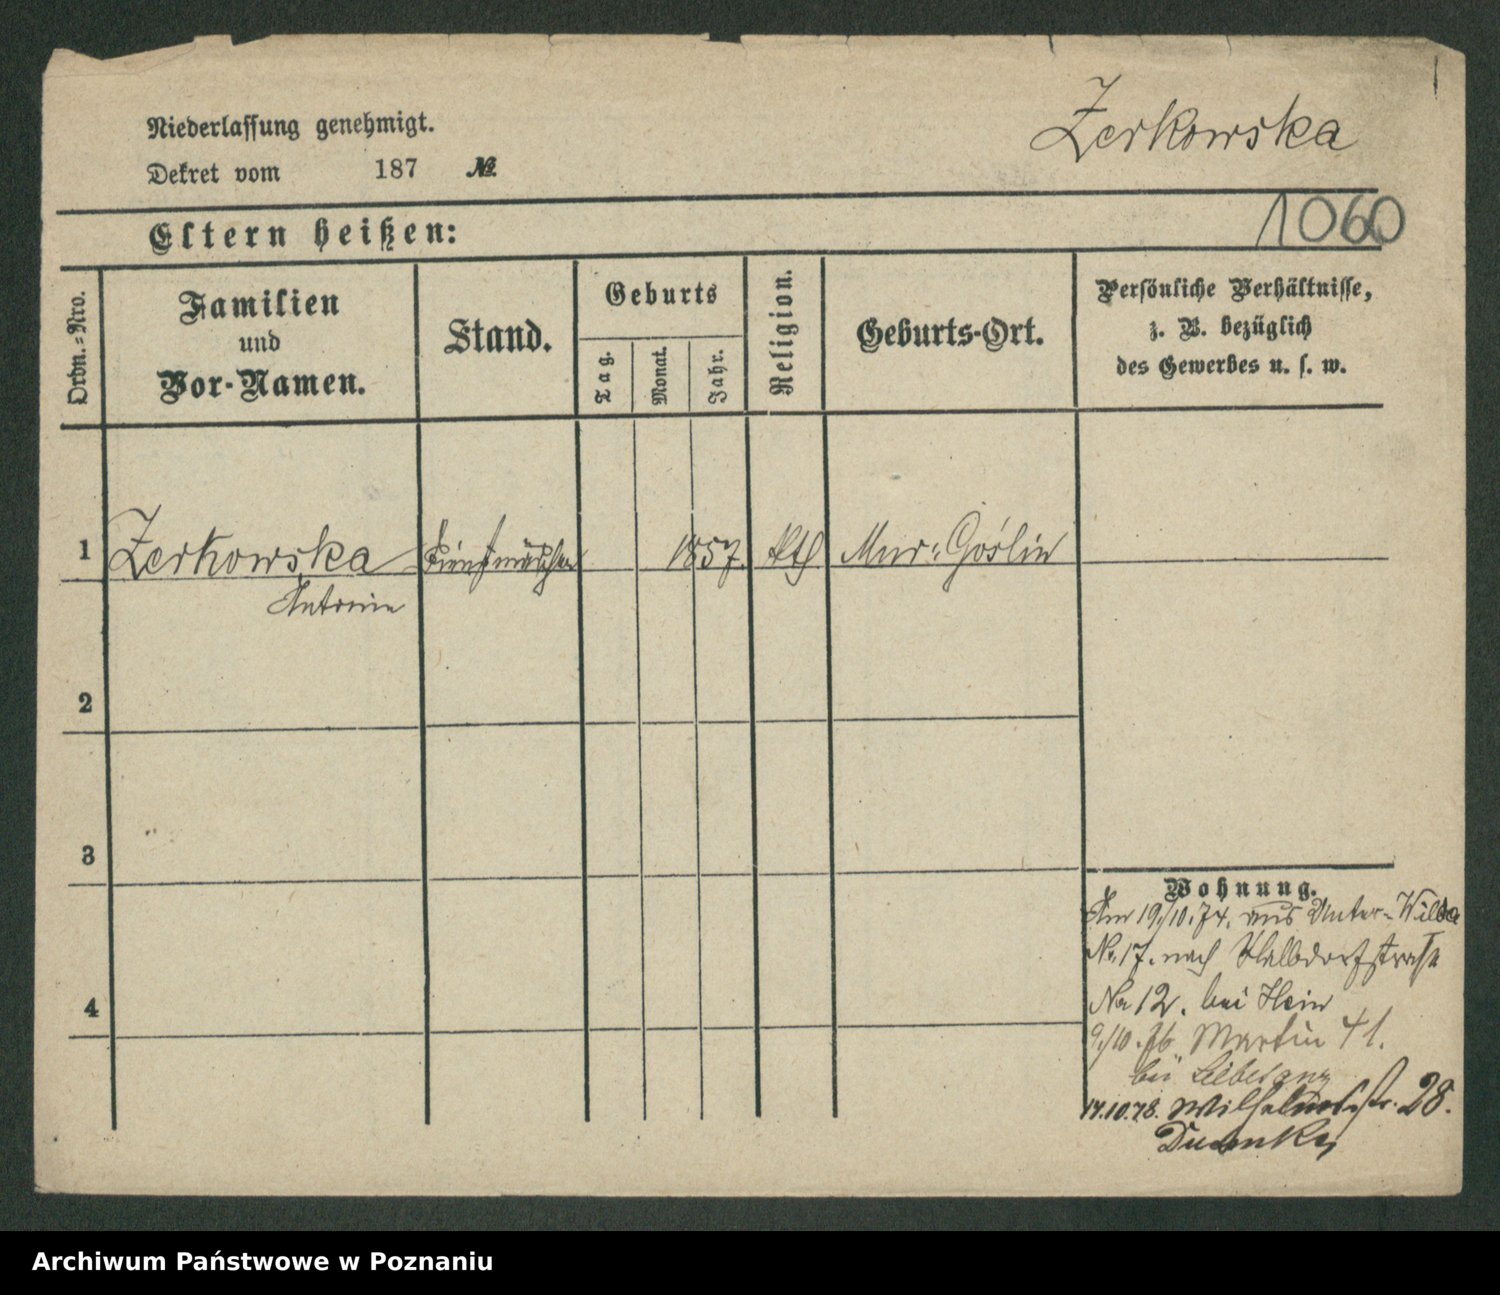 Zerkowska
Niederlassung genehmigt.
Dekret vom 187 №.
1060
Eltern heißen:
Ordn.-Nro.
Familien
und
Vor-Namen.
Stand.
Geburts
Tag.
Monat.
Jahr.
Religion.
Geburts-Ort.
Persönliche Verhältnisse,
z. B. bezüglich
des Gewerbes u. s. w.
1 Zerkowska Dienstmädchen 1857. kth Mur: Goślin
Antonie
2
3
4
Wohnung.
Am 19/10.74. aus Unter-Wilda
No. 17. nach Halbdorfstraße
No 12. bei Hein
9/10.76 Martin 41.
bei
14.10.78. Wilhelmsstr. 28.
Archiwum Państwowe w Poznaniu